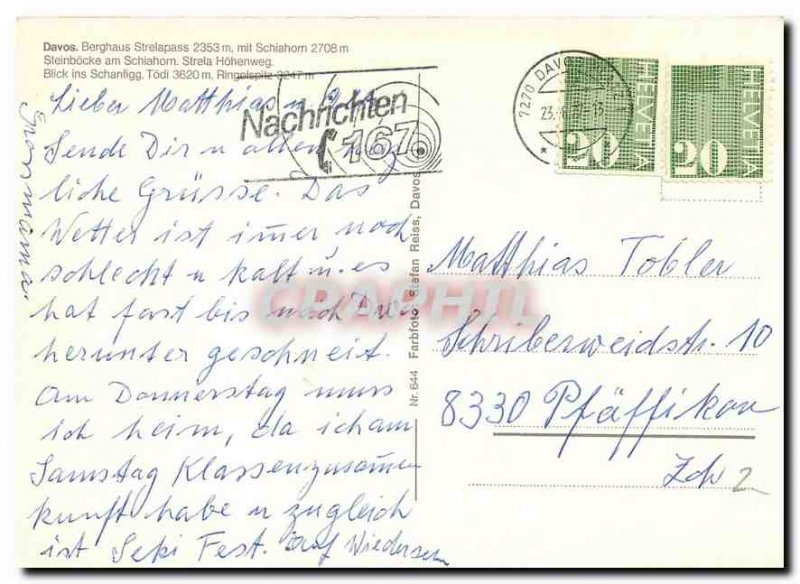 Davos. Berghaus Strelapass 2353 m, mit Schiahorn 2708 m
Steinböcke am Schiahorn. Strela Höhenweg.
Blick ins Schanfigg, Tödi 3620 m. Ringelspitz 3247 m
7270 DAVOS
23.
HELVETIA
20
HELVETIA
20
Nachrichten
167
Lieber Matthias u
Sende Dir u allen
liche Grüsse. Das
Wetter ist imer noch
schlecht u kalt u. es
hat fast bis nach
herunter geschneit.
Am Donnerstag muss
ich heim, da ich am
Samstag Klassenzusamen
kunft habe u zugleich
ist Seki Fest. Auf Wiedersehn
Grossmama
Nr. 644 Farbfoto: Stefan Reiss, Davos
Matthias Tobler
Schriberweidstr. 10
8330 Pfäffikon
Zch
2
CPAPHIL